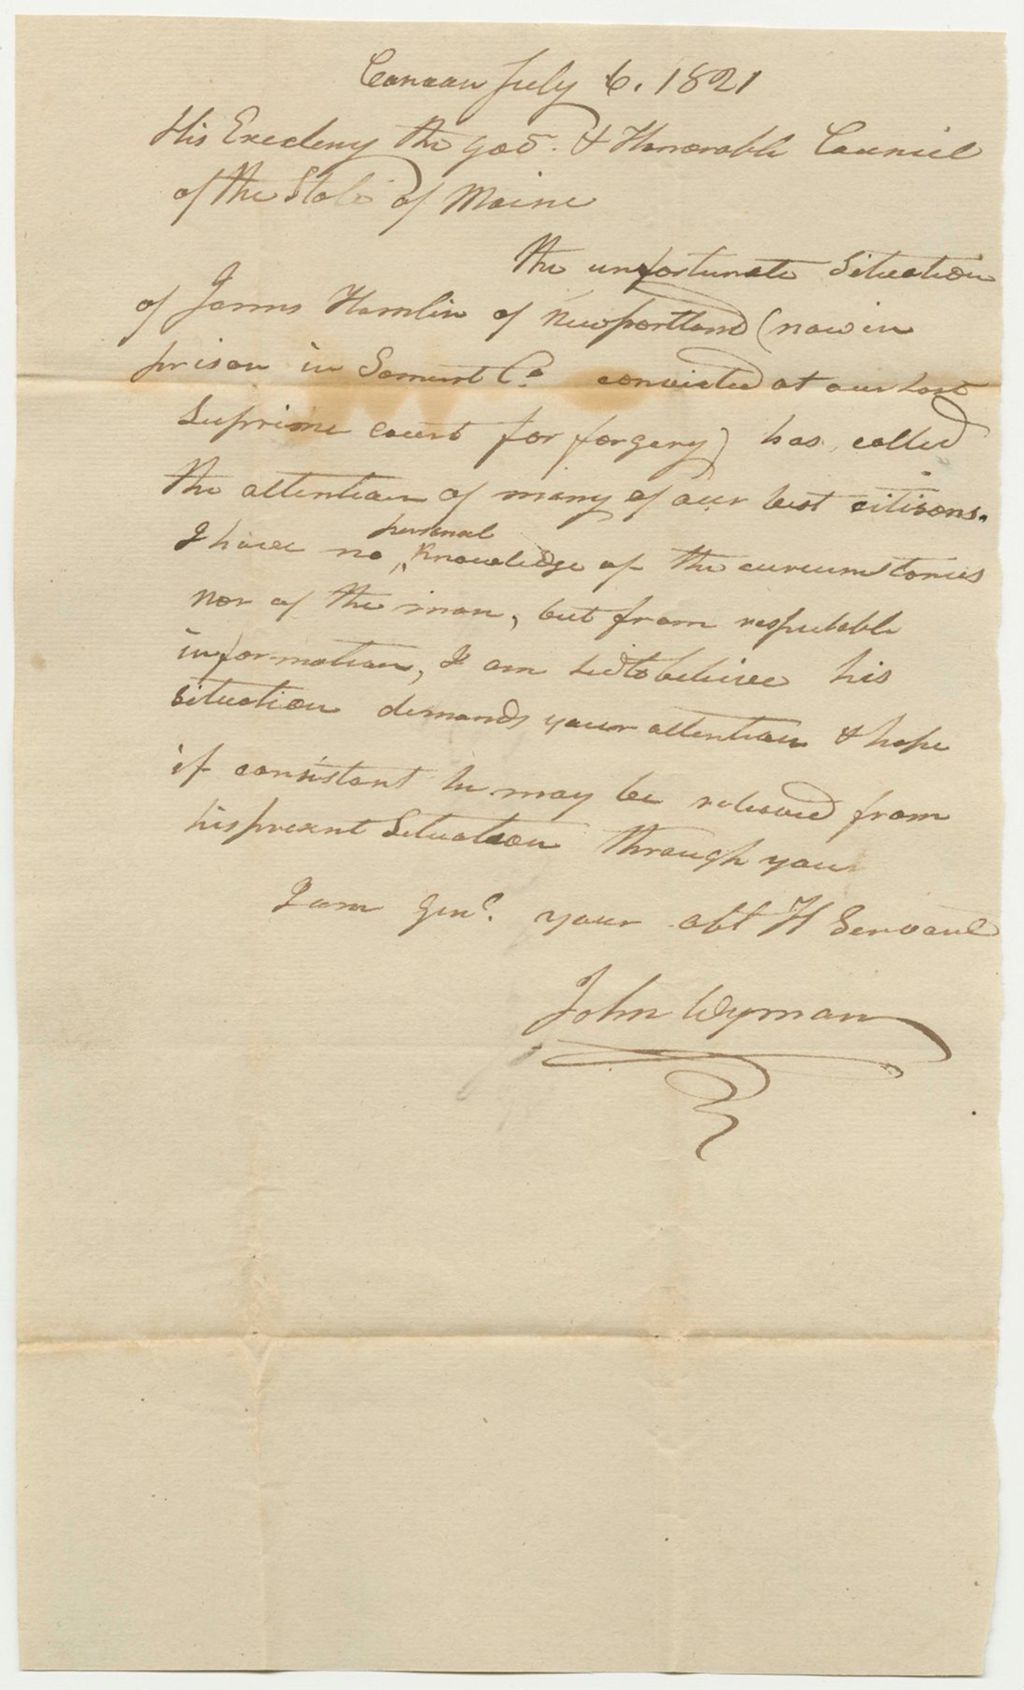 Canaan July 6. 1821
His Excelleny the Gov. & Honorable Council
of the State of Maine
the unfortunate Situation
of James Hamlin of Newportland (now in
prison in Somerset Co. convicted at our last
Supreme court for forgery) has called
the attention of many of our best citisens.
I have no personal knowledge of the curcumstances
nor of the man, but from respectable
information, I am led to believe his
situation demands your attention & hope
if consistant he may be released from
his present Situation through you
I am Gen. your obt H Servant
John Wyman